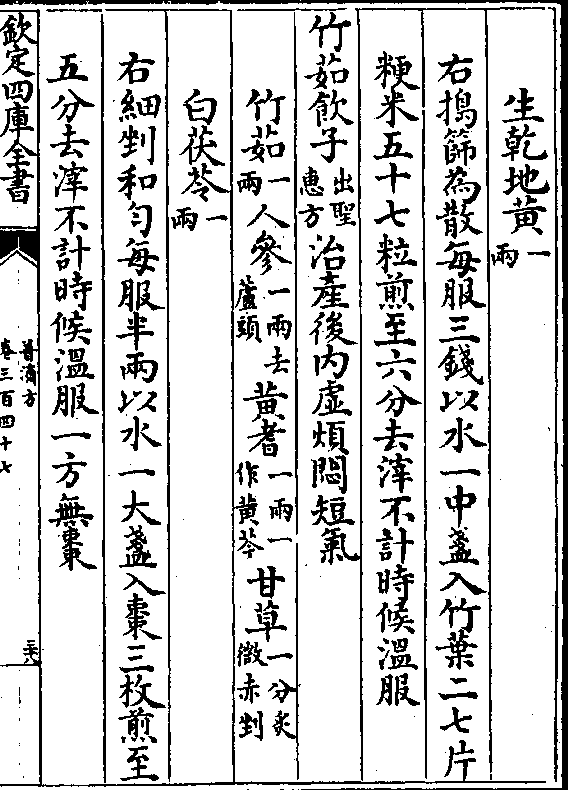 生乾地黄一兩
右搗篩為散每服三錢以水一中盞入竹葉二七片
粳米五十七粒煎至六分去滓不計時候溫服
竹茹飲子出聖惠方治產後内虛煩悶短氣
竹茹一兩人參一兩去蘆頭黄耆一兩一作黄芩甘草一分炙微赤剉
白茯苓一兩
右細剉和勻每服半兩以水一大盞入棗三枚煎至
五分去滓不計時候溫服一方無棗
欽定四庫全書
普濟方
卷三百四十七
三六